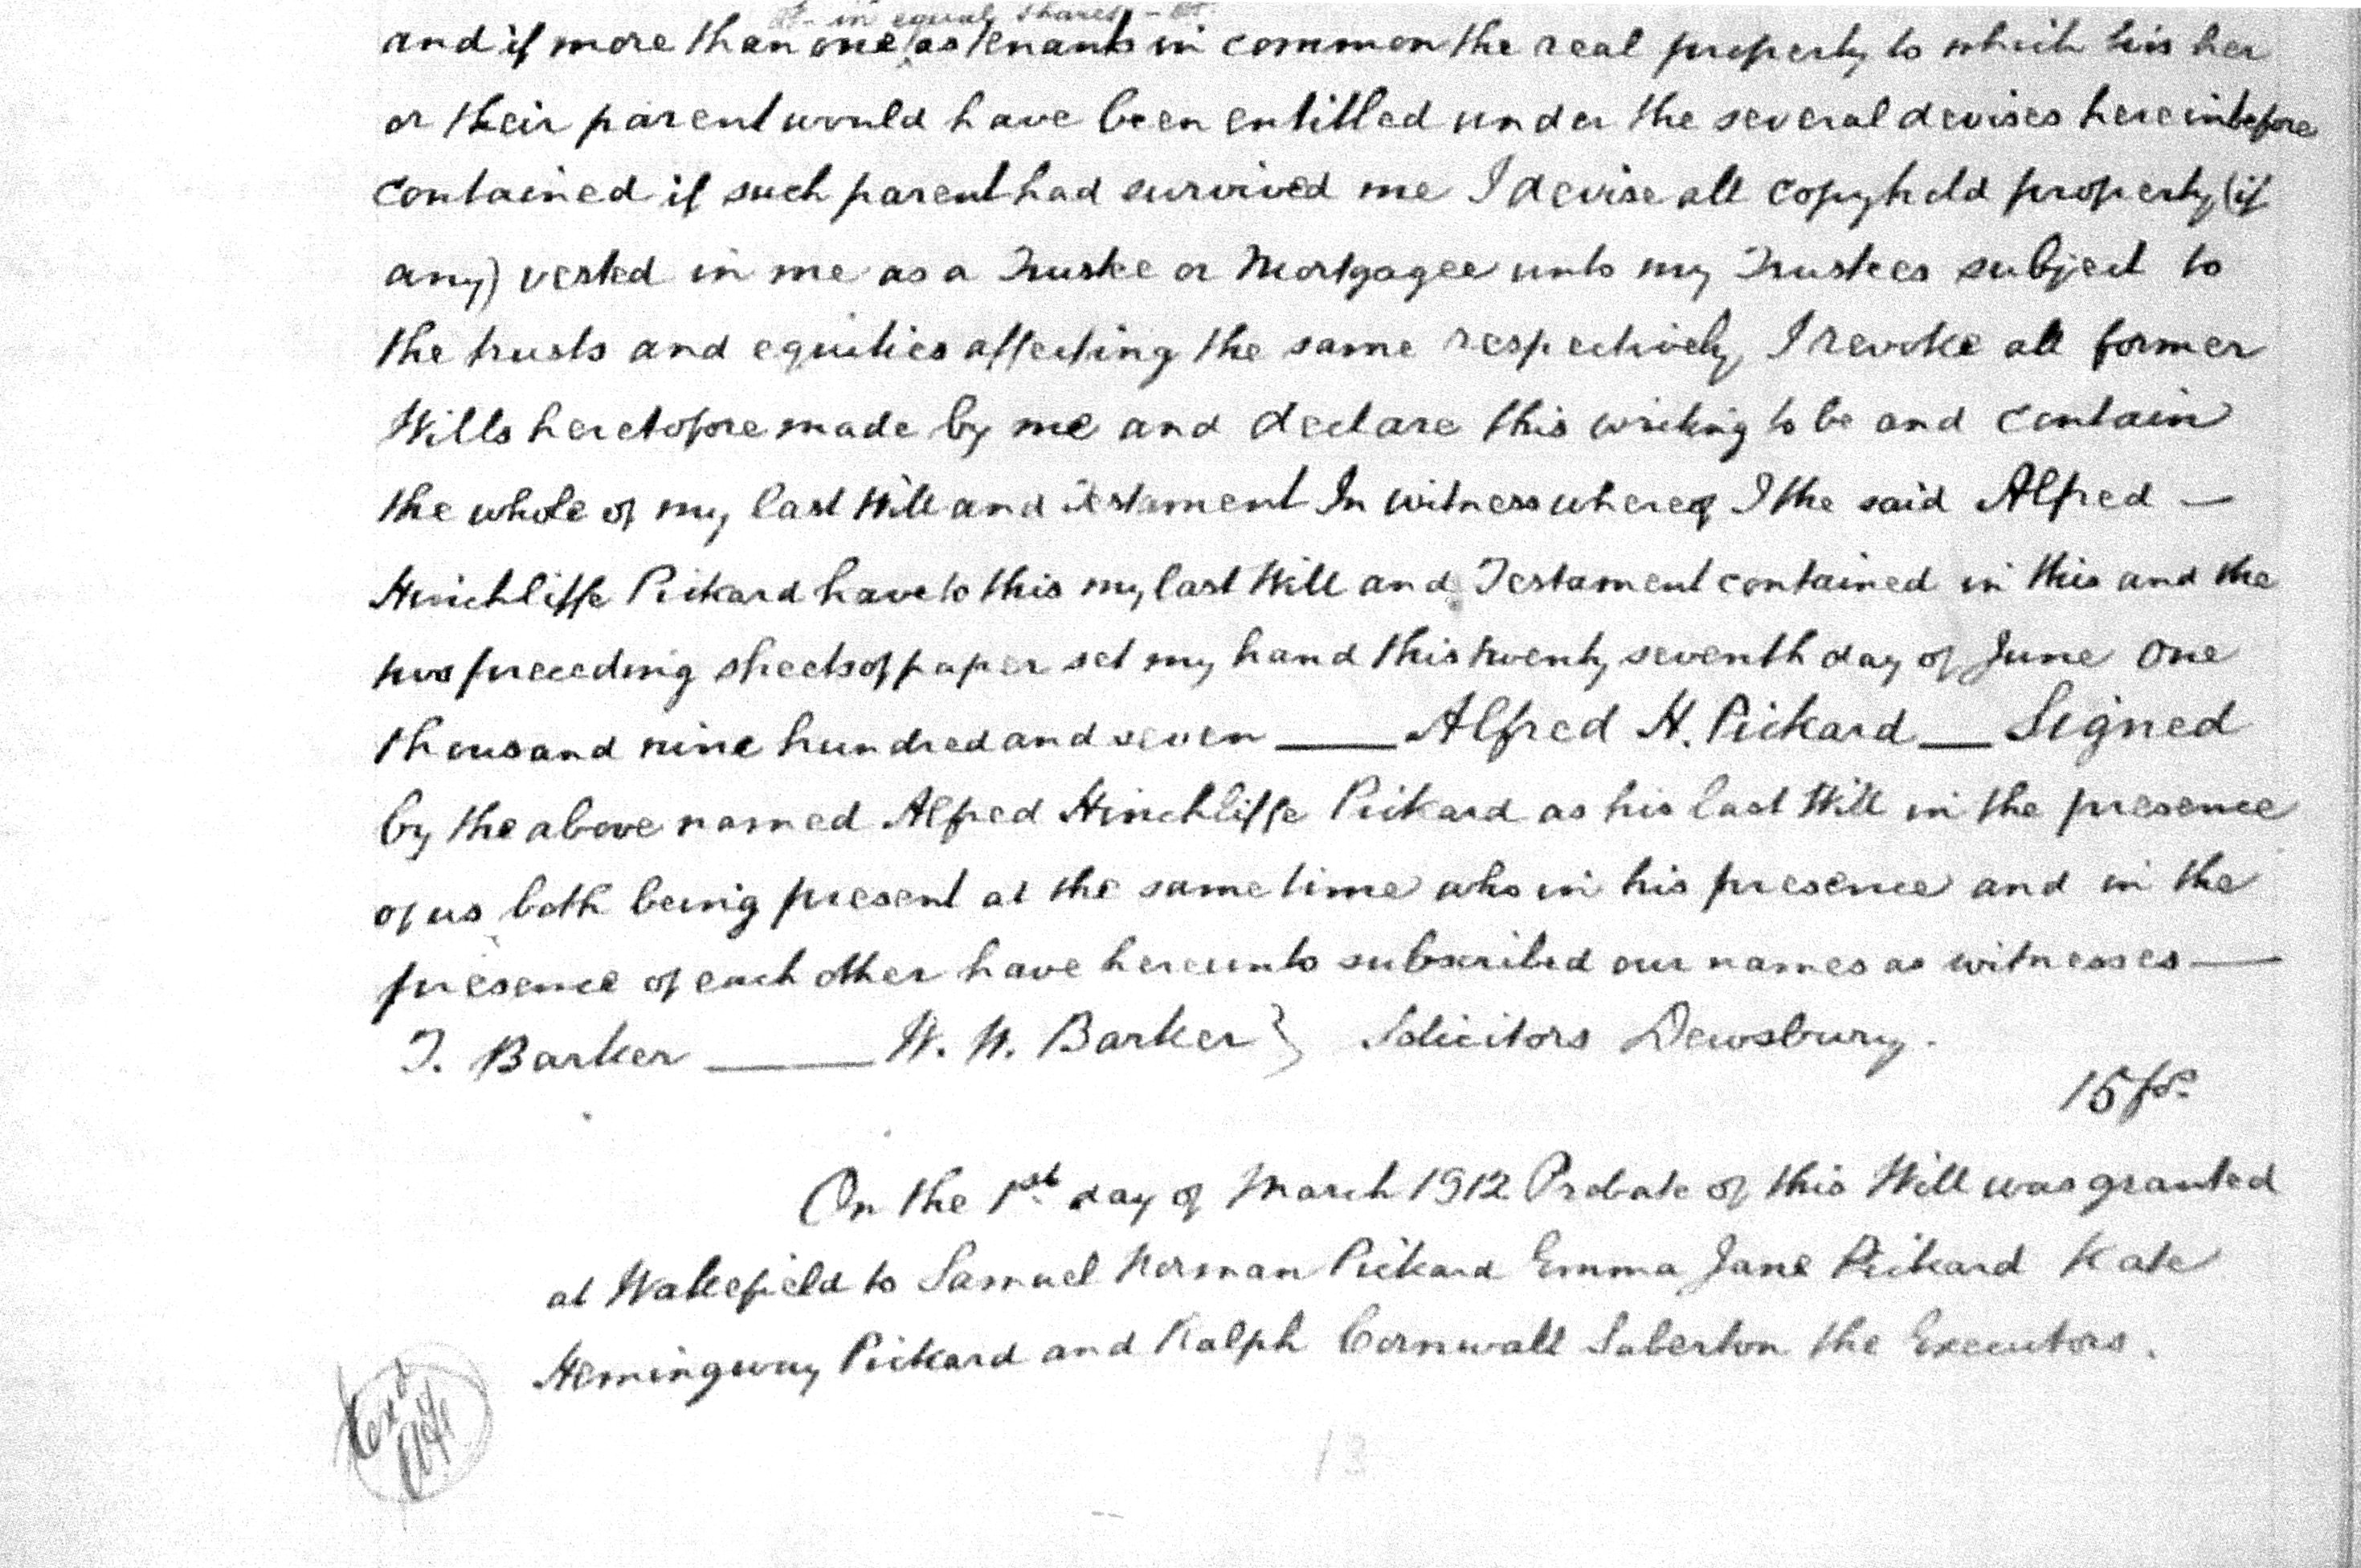 in equal shares
and if more than one as tenants in common the real property to which his her
or their parent would have been entitled under the several devises hereinbefore
contained if such parent had survived me I devise all copyhold property (if
any) vested in me as a Trustee or Mortgagee unto my Trustees subject to
the trusts and equities affecting the same respectively I revoke all former
Wills heretofore made by me and declare this writing to be and contain
the whole of my last Will and Testament In witness whereof I the said Alfred —
Hinchliffe Pickard have to this my last Will and Testament contained in this and the
two preceding sheets of paper set my hand this twenty seventh day of June One
thousand nine hundred and seven —— Alfred H. Pickard — Signed
by the above named Alfred Hinchliffe Pickard as his last Will in the presence
of us both being present at the same time who in his presence and in the
presence of each other have hereunto subscribed our names as witnesses —
T. Barker —— W. N. Barker } Solicitors Dewsbury.
15 fos.
On the 1st day of March 1912 Probate of this Will was granted
at Wakefield to Samuel Norman Pickard Emma Jane Pickard Kate
Hemingway Pickard and Ralph Cornwall Saberton the Executors.